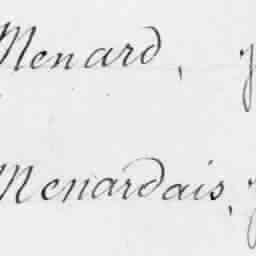 Menard,
Menardais,